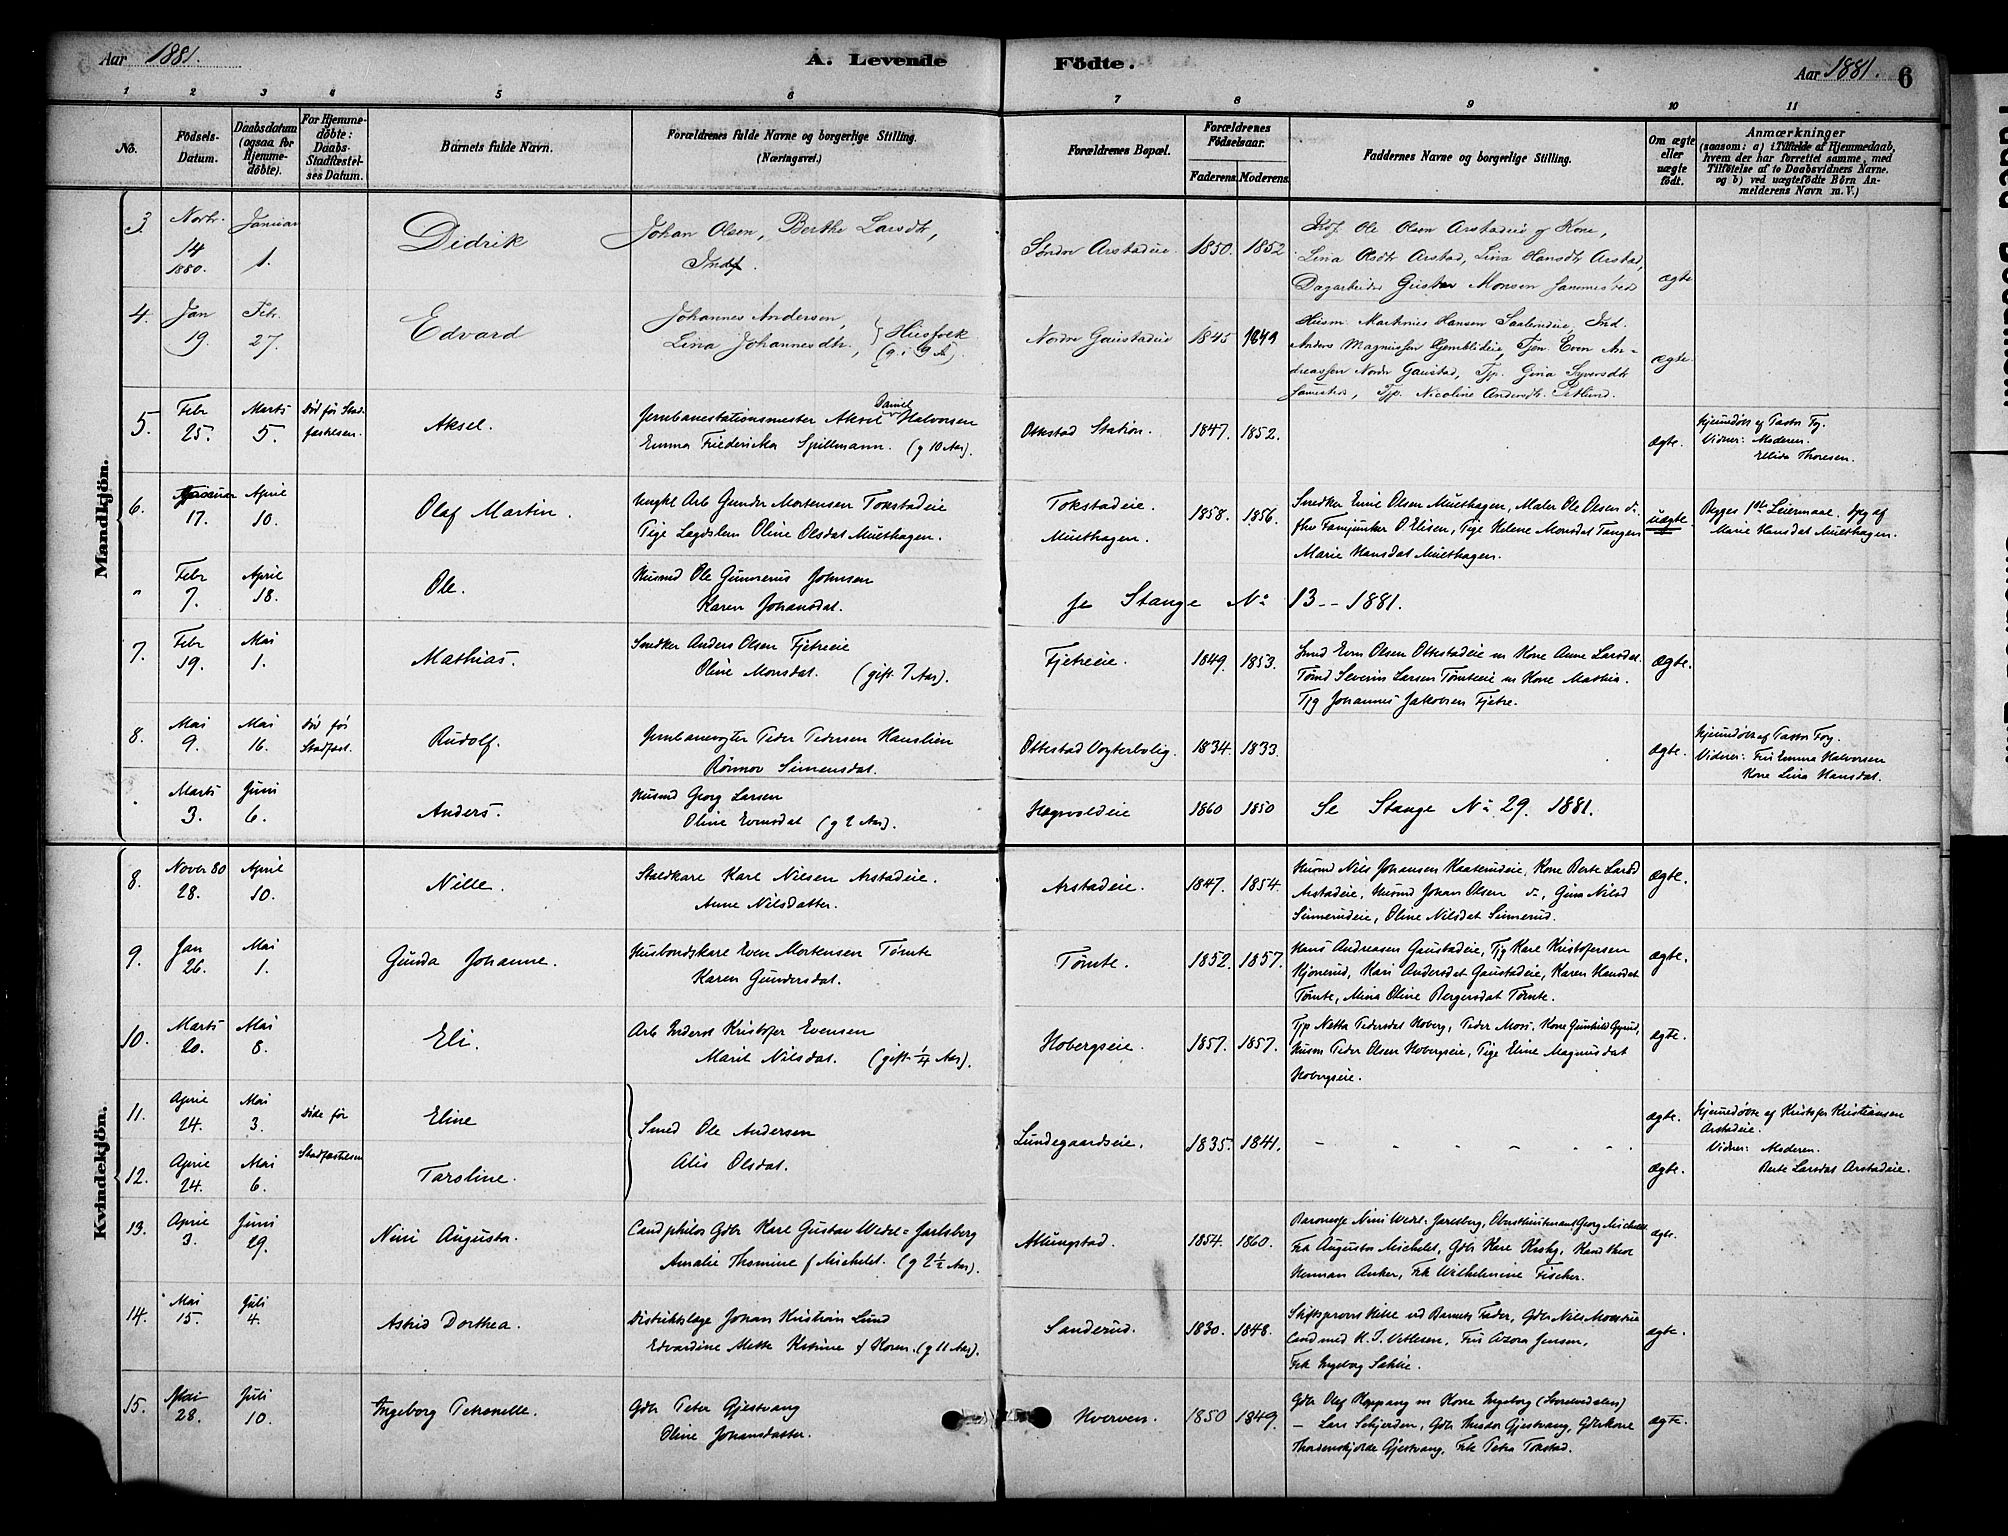 Aar 1881.
A. Levende Födte.
Aar 1881. 6
1 2 3 4 5 6 7 8 9 10 11
No.
Födsels-Datum.
Daabsdatum (ogsaa for Hjemmedöbte).
For Hjemmedöbte: Daabs-Stadfæstelses Datum.
Barnets fulde Navn.
Forældrenes fulde Navne og borgerlige Stilling. (Næringsvei.)
Forældrenes Bopæl.
Forældrenes Födselsaar.
Faderens. Moderens.
Faddernes Navne og borgerlige Stilling.
Om ægte eller uægte födt.
Anmærkninger
(saasom: a) i Tilfælde af Hjemmedaab,
hvem der har forrettet samme, med
Tilföielse af to Daabsvidners Navne.
og b) ved uægtefödte Börn An-
melderens Navn m. V.)
Mandkjön.
3. Novbr. 14 1880. Januar 1. Didrik
Johan Olsen, Berthe Larsdtr,
Ind.
Søndre Arstadeie 1850. 1852
Ole Olsen Arstadeie og Kone,
Lina Olsdtr Arstad, Lina Hansdtr Arstad,
Dagarbeider Gustav Monsen
ægte
4. Jan 19. Febr. 27. Edvard
Johannes Andersen,
Lina Johannesdtr, } Husfolk
(g. i 9 A).
Nordre Gaustadeie 1845 1849
Husm. Marthnius Hansen Saalundeie, Ind.
Anders Magnussen, Tjen. Even An-
dreassen Nordr Gaustad, Tjp. Gina Syversdtr
Tjp. Nicoline Andersdtr Østlund.
ægte
5. Febr 25. Marts 5. Død før Stadfæstelsen. Aksel.
Jernbanestationsmester Aksel Daniel Halvorsen
Emma Friedericka Spillmann. (g 10 Aar).
Ottestad Station. 1847. 1852. ægte.
Hjemmdøbt af Pastor Fog.
Vidner: Moderen.
Ellida Thoresen.
6. Januar 17. April 10. Olaf Martin.
Ungkl Arb Gunder Mortensen Tokstadeie
Pige Lagdslem Oline Olsdat Muelhagen.
Tokstadeie.
Muelhagen.
1858. 1856.
Snedker Ernie Olsen Muelhagen, Maler Ole Olsen do.
fhv Fanejunker O Elisen, Pige Helene Monsdat Tangen
Marie Hansdat Muelhagen.
uægte
Begges 1ste Leiermaal. Opg af
Marie Hansdat Muelhagen.
" Febr 7. April 18. Ole.
Husmd Ole Gunnerius Johnsen
Karen Johansdat.
se Stange No 13 -- 1881.
7. Febr 19. Mai 1. Mathias.
Snedker Anders Olsen Fjetreeie
Oline Monsdat. (gift. 7 Aar).
Fjetreeie. 1849. 1853.
Smed Even Olsen Ottestadeie m Kone Anne Larsdat.
Tømd Severin Larsen Tømteeie m Kone Mathia.
Tjg Johannes Jakobsen Fjetre.
ægte.
8. Mai 9. Mai 16. Død før Stadfæst. Rudolf.
Jernbanevogter Peder Pedersen Hauslien
Rønnov Simensdat.
Ottestad Vogterbolig. 1834. 1833. ægte.
Hjemmdøbt af Pastor Fog.
Vidner: Fru Emma Halvorsen
Kone Lina Hansdat.
Marts 3. Juni 6. Anders.
Husmd Georg Larsen
Oline Evensdat (g 2 Aar).
Hegnvoldeie 1860 1850 Se Stange No 29. 1881.
Kvindekjön.
8. Novbr 80 28. April 10. Nille.
Staldkarl Karl Nilsen Arstadeie.
Anne Nilsdatter.
Arstadeie. 1847. 1854.
Husmd Nils Johansen Kaaterudeie, Kone Berte Larsd
Arstadeie, Husmd Johan Olsen do, Gina Nilsd
Sinnerudeie, Oline Nilsdat Sinnerud.
ægte.
9. Jan 26. Mai 1. Gunda Johanne.
Husbondskarl Even Mortensen Tømte
Karen Gundersdat.
Tømte. 1852. 1857.
Hans Andreasen Gaustadeie, Tjg Karl Kristofersen
Hjonerud, Kari Andersdat Gaustadeie, Karen Hansdat
Tømte, Mina Oline Bergersdat Tømte.
ægte.
10. Marts 20. Mai 8. Eli.
Arb Inderst Kristofer Evensen
Marit Nilsdat. (gift. 1/4 Aar).
Hobergseie. 1857. 1857.
Tjp Netta Pedersdat Hoberg, Peder Mosi, Kone Gunhild
Husm Peder Olsen Hobergseie, Pige Eline Magnusdat
Hobergseie.
ægte.
11. April 24. Mai 3. Døde før Eline
12. April 24. Mai 6. Stadfæstelsen Caroline.
Smed Ole Andersen
Alis Olsdat.
Lundegaardseie. 1835. 1841. ægte. ægte.
Hjemmedøbte af Kristofer Kristiansen
Arstadeie.
Vidner: Moderen.
Berte Larsdat Arstadeie.
13. April 3. Juni 29. Nini Augusta.
Cand philos Gdbr Karl Gustav Wedel-Jarlsberg
Amalie Thomine f Michelet. (g 2½ Aar).
Atlungstad. 1854. 1860.
Baronesse Nini Wedel-Jarlsberg, Oberstlieutenant Georg Michelet
Frk Augusta Michelet, Gdbr Karl Krohg, Kand theol
Herman Anker, Frk Wilhelmine Fischer.
ægte.
14. Mai 15. Juli 4. Astrid Dorthea.
Distriktslæge Johan Kristian Lund
Edvardine Mette Katrine f Koren. (g 11 Aar).
Sanderud. 1830. 1848.
Stiftsprovst Hille ved Barnets Fader, Gdbr Nils
Cand med K. J. Uthesen, Fru Azora Jensen,
Frk Ingeborg
ægte.
15. Mai 28. Juli 10. Ingeborg Petronelle.
Gdbr Peter Gjestvang
Oline Johansdatter.
Hverven. 1850 1849
Gdbr Olaf Koppang m Kone Ingeborg (Storelvedalen)
— Lars Schjerden, Gdbr Theodor Gjestvang, Gdbrkone
Thordenskjolde Gjestvang, Frk Petra Tokstad.
ægte.